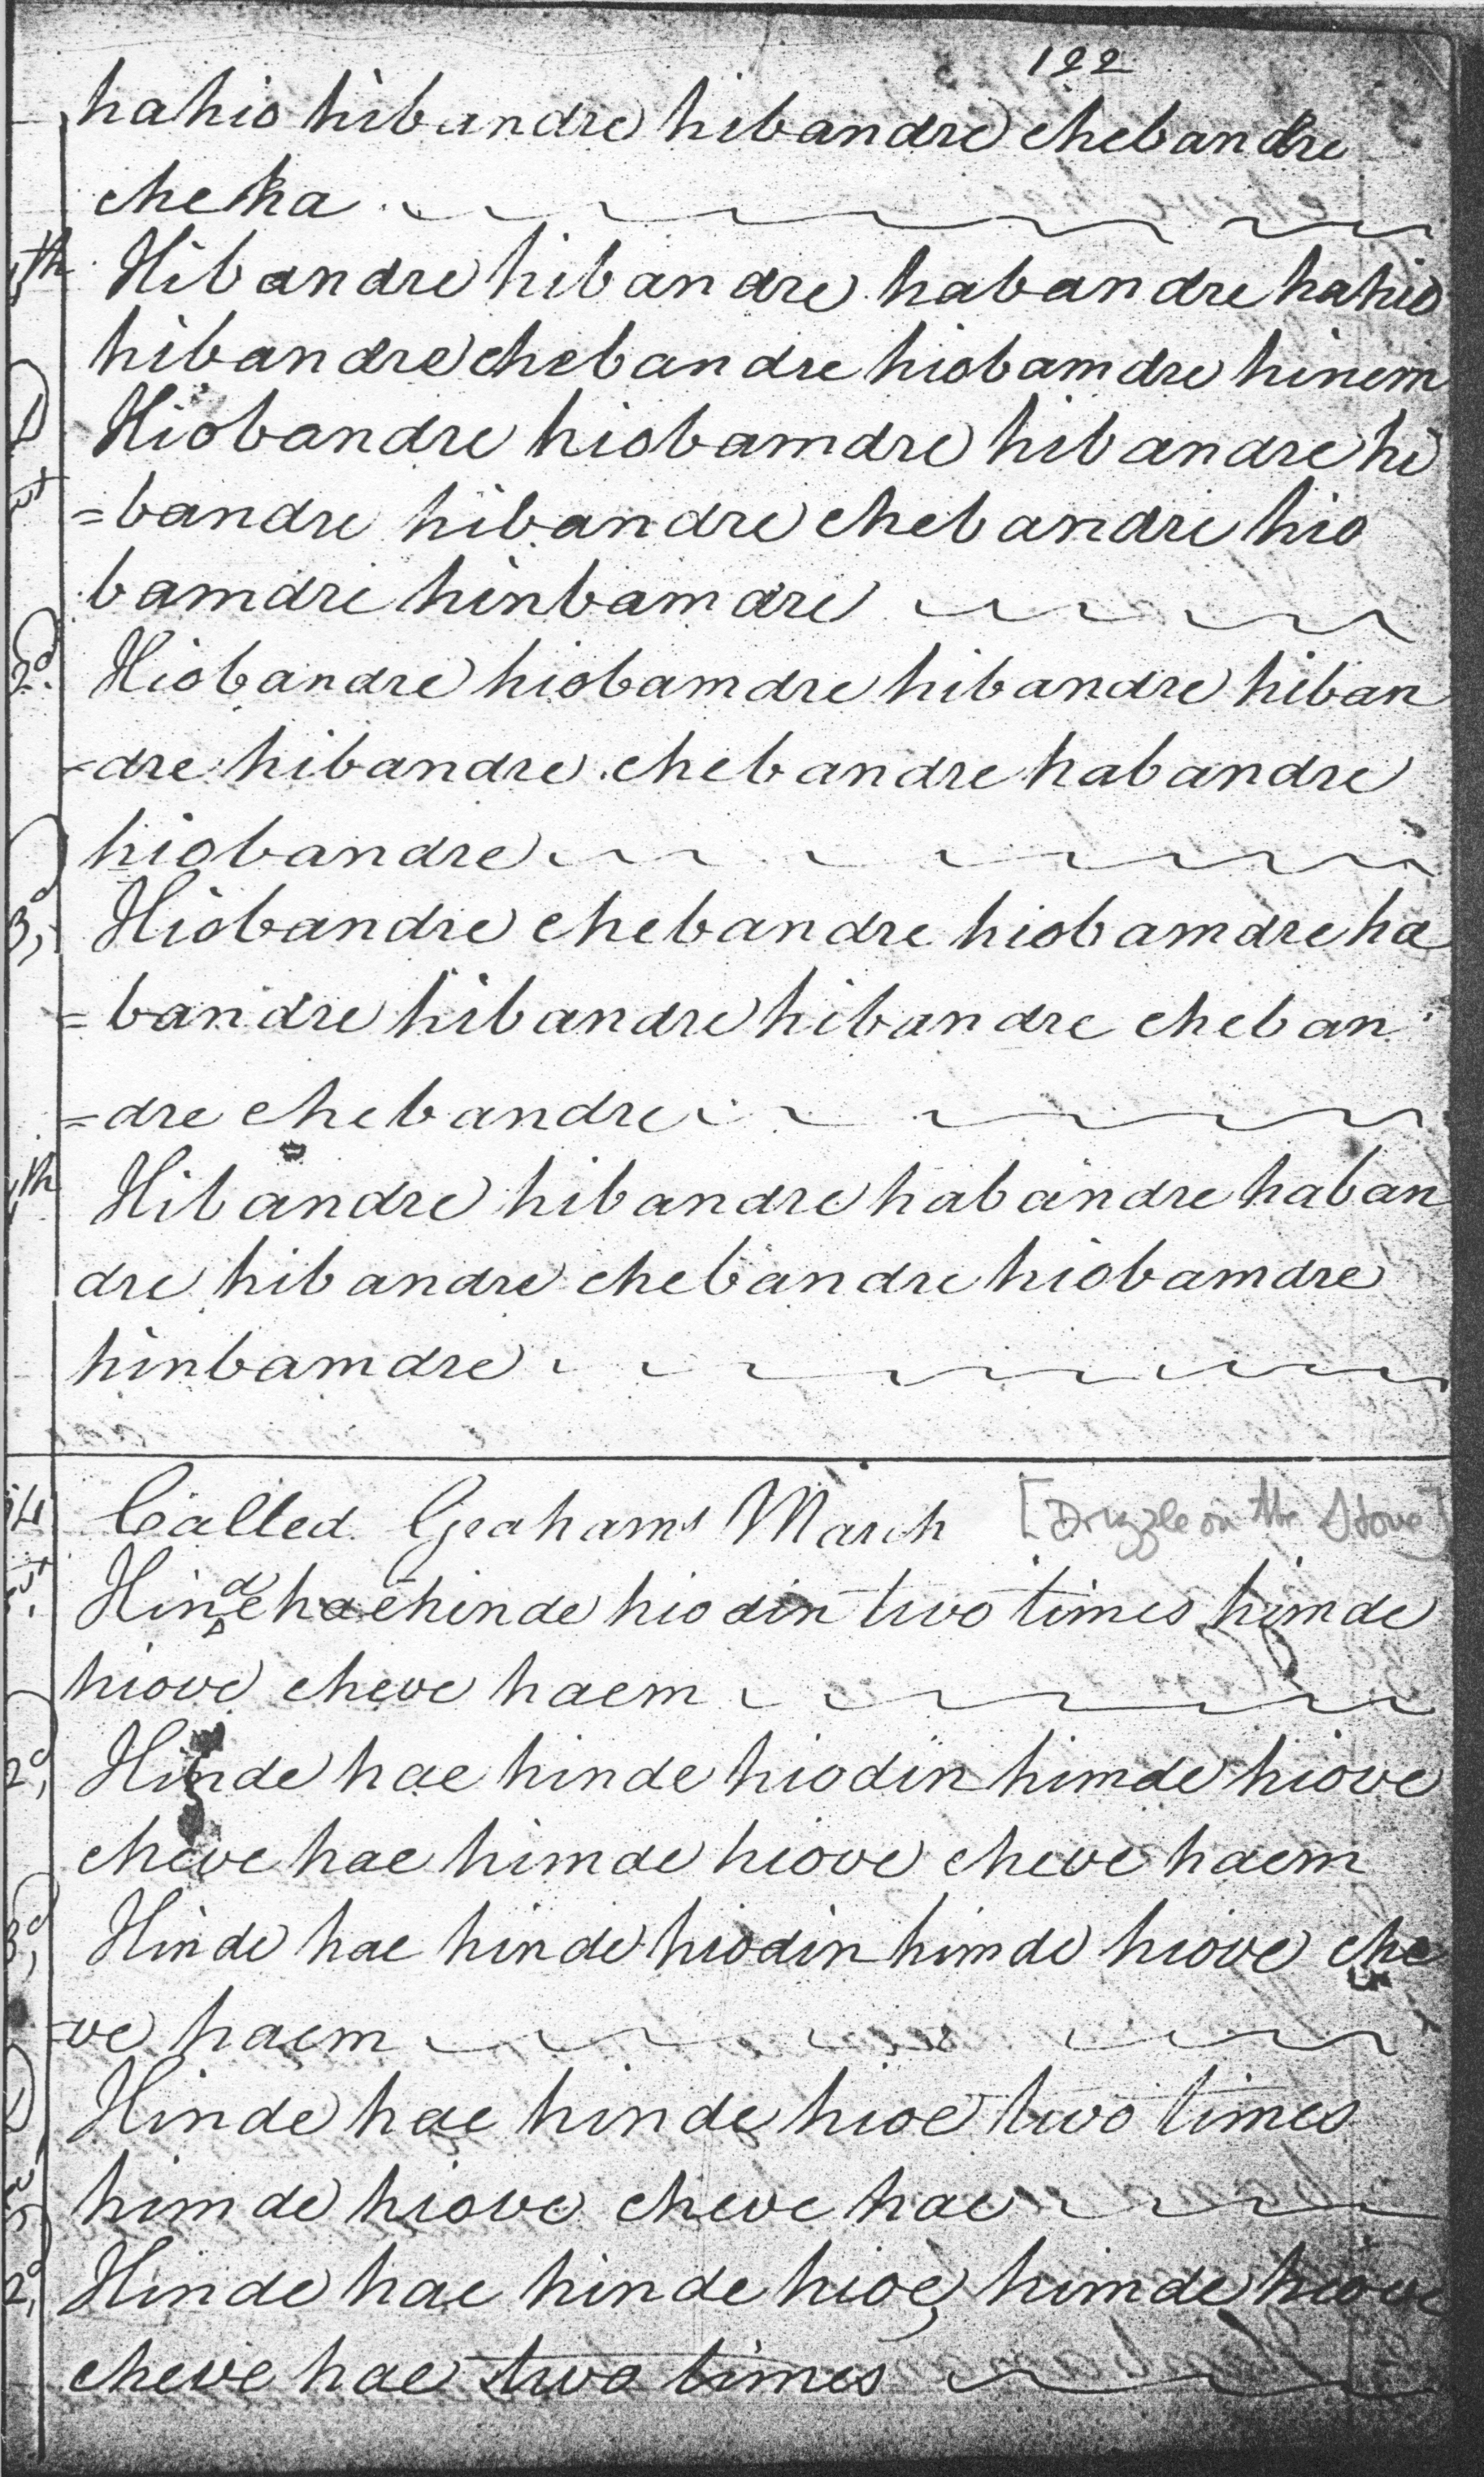 122
hahio hibandre hibandre chebandre
cheha
4th Hibandre hibandre habandre hahio
hibandre chebandre hiobamdre hinem
D Hiobandre hiobamdre hibandre hi
=bandre hibandre chebandre hio
bamdre hinbamdre
2d Hiobandre hiobamdre hibandre hiban
-dre hibandre chebandre habandre
hiobandre
3d Hiobandre chebandre hiobamdre ha
=bandre hibandre hibandre cheban
=dre chebandre
th Hibandre hibandre habandre haban
dre hibandre chebandre hiobamdre
hinbamdre
Called Grahams March [Drizzle on the Stone]
Hinde hae hinde hiodin two times himde
hiove cheve haem
2d Hinde hae hinde hiodin himde hiove
cheve hae himde hiove cheve haem
3d Hinde hae hinde hiodin himde hiove che
-ve haem
D Hinde hae hinde hioe two times
himde hiove cheve hae
2d Hinde hae hinde hioe himde hiove
cheve hae two times